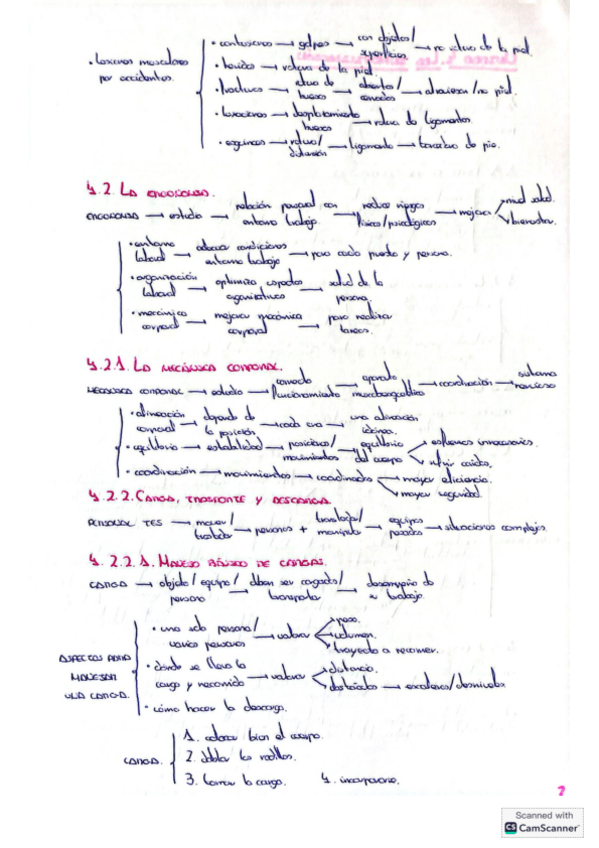 • contusiones → golpes → con objetos/superficies → no rotura de la piel.
• Lesiones musculares por accidentes.
• heridas → rotura de la piel.
• fracturas → rotura de huesos → abiertas/cerradas → atraviesa/no piel.
• luxaciones → desplazamiento huesos → rotura de ligamentos.
• esguinces → rotura/distensión → ligamento → torcedura de pie.
4.2. La ergonomía.
ergonomía → estudio → relación personal con entorno trabajo → reduce riesgos físicos/psicológicos → mejora nivel salud. bienestar.
• entorno laboral → adecuar condiciones entorno trabajo → para cada puesto y persona.
• organización laboral → optimiza aspectos organizativos → salud de la persona.
• mecánica corporal → mejorar mecánica corporal → para realizar tareas.
4.2.1. La mecánica corporal.
mecánica corporal → estudio → correcto funcionamiento → aparato musculoesquelético → coordinación → sistema nervioso
• alineación corporal → depende de la posición → cada una → una alineación idónea.
• equilibrio → estabilidad → posiciones/movimientos → equilibrio del cuerpo → esfuerzos innecesarios. caídas.
• coordinación → movimientos → coordinados → mayor eficiencia. mayor seguridad.
4.2.2. Carga, transporte y descarga.
personal TES → mover/trasladar → personas + → trasladar/manipular → equipos pesados → situaciones complejas.
4.2.2.1. Manejo básico de cargas.
carga → objeto/equipo/persona → deben ser cargados/transportar → desempeño de su trabajo
aspectos para manejar una carga.
• una sola persona/varias personas → valorar → peso. volumen. trayecto a recorrer.
• dónde se lleva la carga y recorrido → valorar → distancia. obstáculos → escaleras/desniveles
• cómo hacer la descarga.
carga.
1. colocar bien el cuerpo.
2. doblar las rodillas.
3. la carga.
4. incorporarse.
2
Scanned with
CS CamScanner